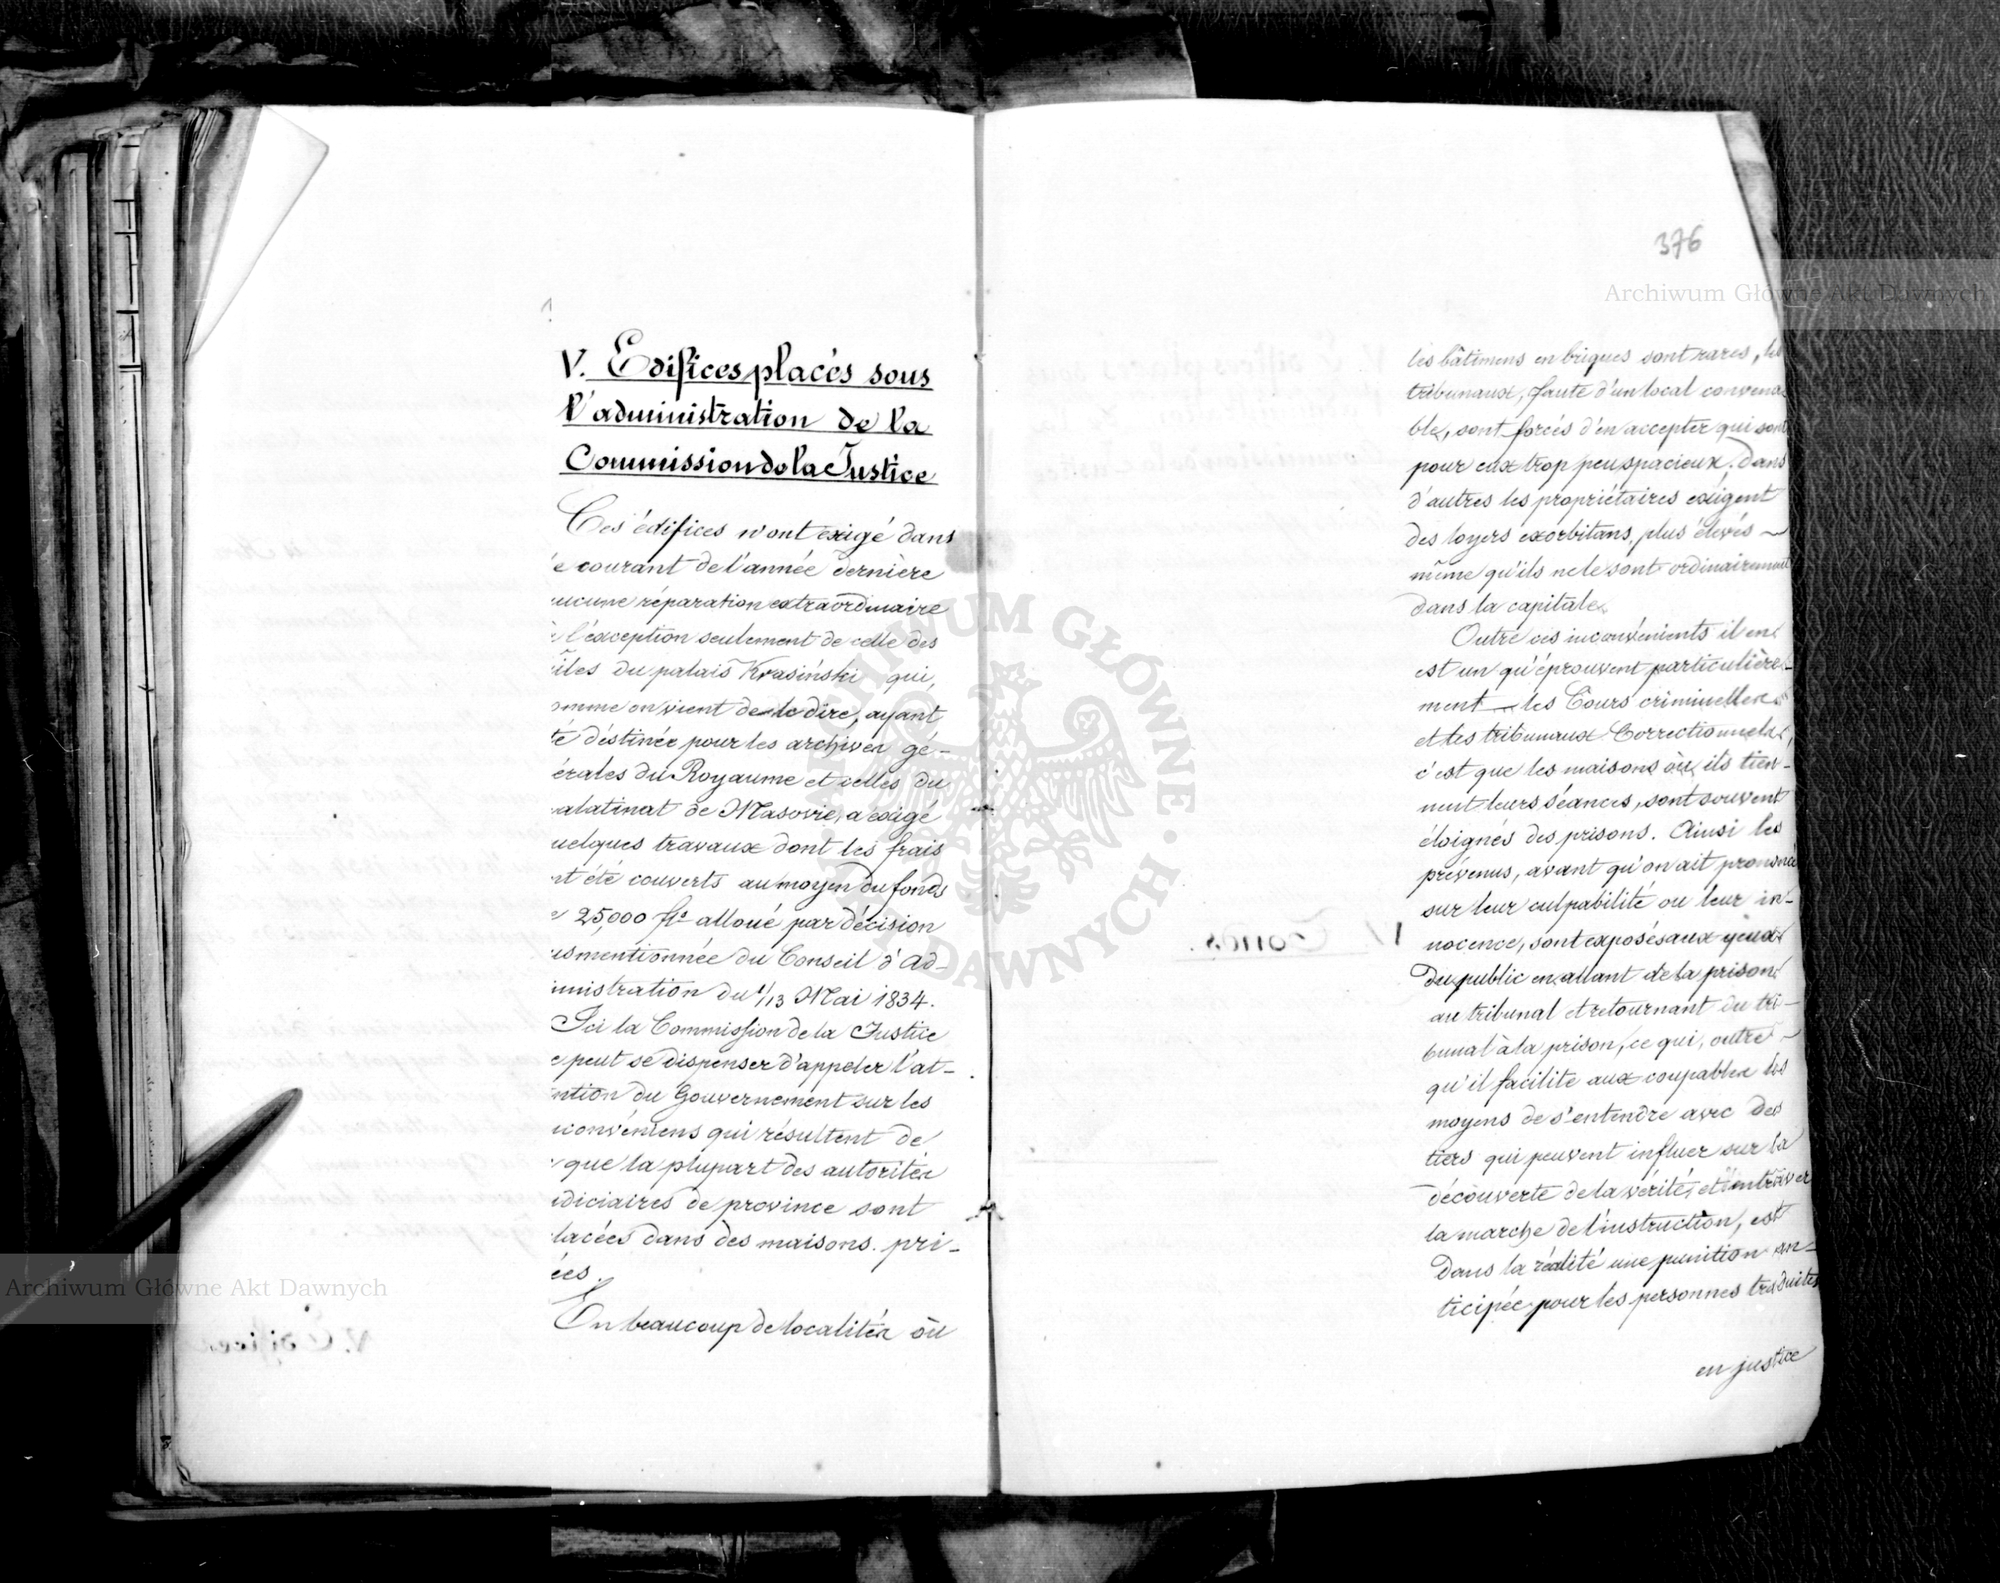 V. Edifices placés sous
l'administration de la
Commission de la Justice
Ces édifices n'ont exigé dans
e courant de l'année dernière
ucune réparation extraordinaire
à l'exception seulement de celle des
iles du palais Krasiński qui,
omme on vient de le dire, ayant
té déstinée pour les archives gé-
érales du Royaume et celles du
alatinat de Masovie, a exigé
uelques travaux dont les frais
nt été couverts au moyen du fonds
e 25,000 fls alloué par décision
usmentionnée du Conseil d'Ad-
inistration du 1/13 Mai 1834.
Ici la Commission de la Justice
e peut se dispenser d'appeler l'at-
ntion du Gouvernement sur les
nconvéniens qui résultent de
que la plupart des autorités
udiciaires de province sont
lacées dans des maisons pri-
ées.
En beaucoup de localités où
376
les bâtimens en briques sont rares, les
tribunaux, faute d'un local convena
ble, sont forcés d'en accepter qui sont
pour eux trop peu spacieux; dans
d'autres les propriétaires exigent
des loyers exorbitans, plus élevés
même qu'ils ne le sont ordinairement
dans la capitale.
Outre ces inconvénients il en
est un qu'éprouvent particulière-
ment les Cours criminelles
et les tribunaux Correctionnels,
c'est que les maisons où ils tien-
nent leurs séances, sont souvent
éloignés des prisons. Ainsi les
prévenus, avant qu'on ait prononcé
sur leur culpabilité ou leur in-
nocence, sont exposés aux yeux
du public en allant de la prison
au tribunal et retournant du tri-
bunal à la prison, ce qui, outre
qu'il facilite aux coupables les
moyens de s'entendre avec des
tiers qui peuvent influer sur la
découverte de la vérité, et entraver
la marche de l'instruction, est
dans la réalité une punition an-
ticipée pour les personnes traduites
en justice
Archiwum Główne Akt Dawnych
Archiwum Główne Akt Dawnych
ARCHIWUM GŁÓWNE AKT DAWNYCH